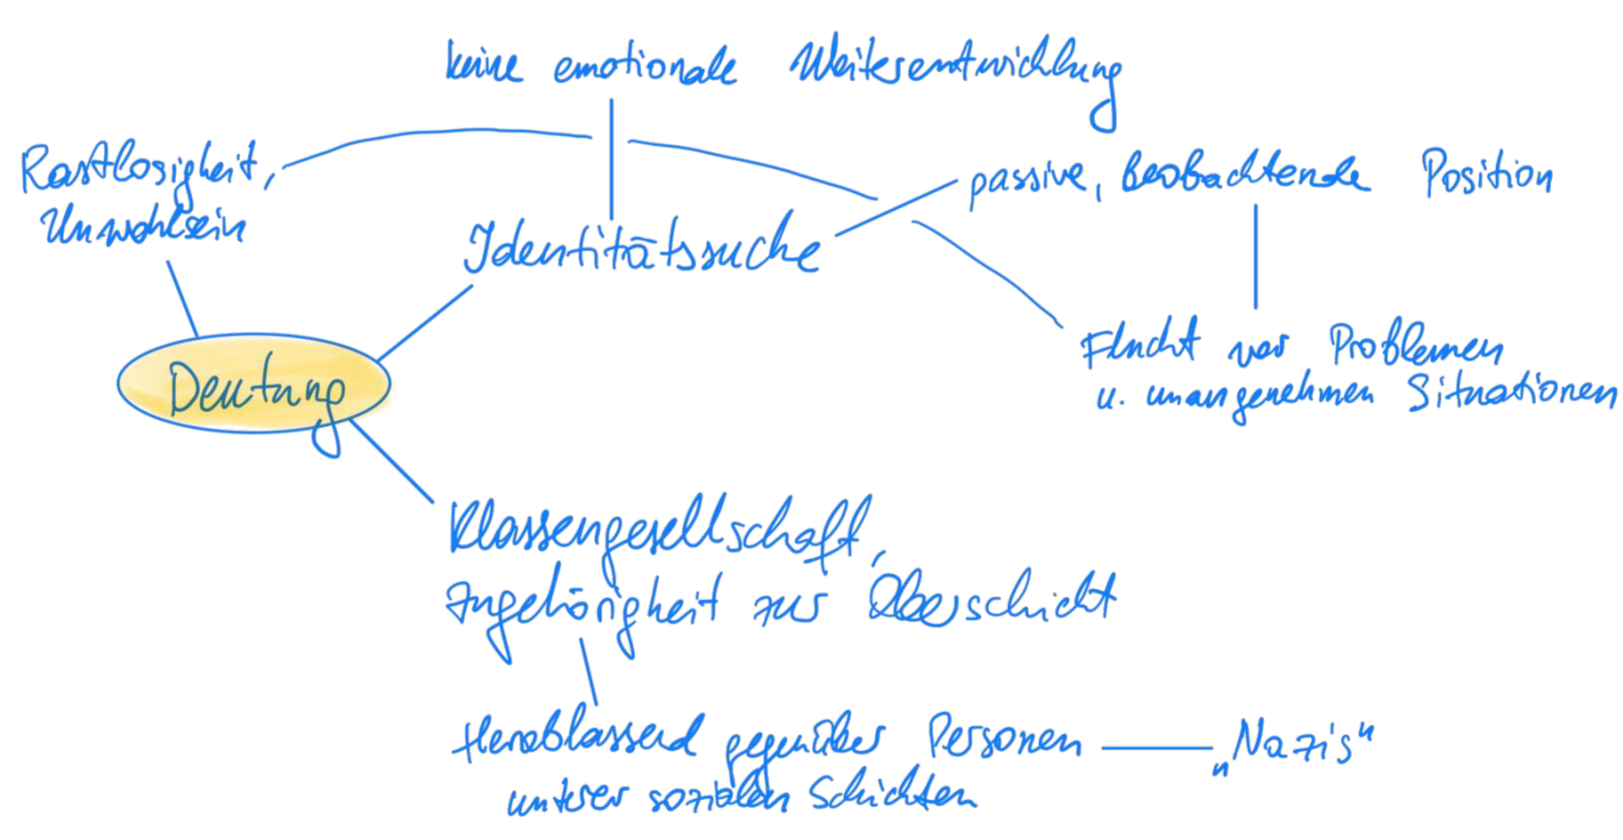 keine emotionale Weiterentwicklung
Rastlosigkeit,
Unwohlsein
passive, beobachtende Position
Identitätssuche
Flucht vor Problemen
u. unangenehmen Situationen
Deutung
Klassengesellschaft,
Zugehörigkeit zur Oberschicht
Herablassend gegenüber Personen
unterer sozialen Schichten
„Nazis"